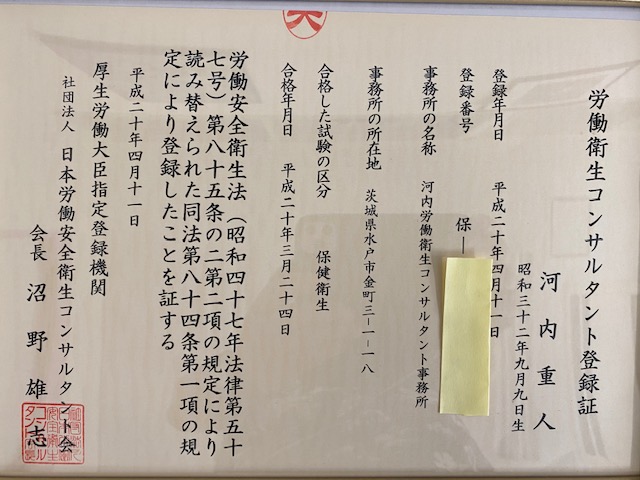 労働衛生コンサルタント登録証
河内重人
昭和三十二年九月九日生
登録年月日 平成二十年四月十一日
登録番号 保―
事務所の名称 河内労働衛生コンサルタント事務所
事務所の所在地 茨城県水戸市金町三―一―一八
合格した試験の区分 保健衛生
合格年月日 平成二十年三月二十四日
労働安全衛生法（昭和四十七年法律第五十
七号）第八十五条の二第二項の規定により
読み替えられた同法第八十四条第一項の規
定により登録したことを証する
平成二十年四月十一日
厚生労働大臣指定登録機関
社団法人 日本労働安全衛生コンサルタント会
会長 沼野雄志